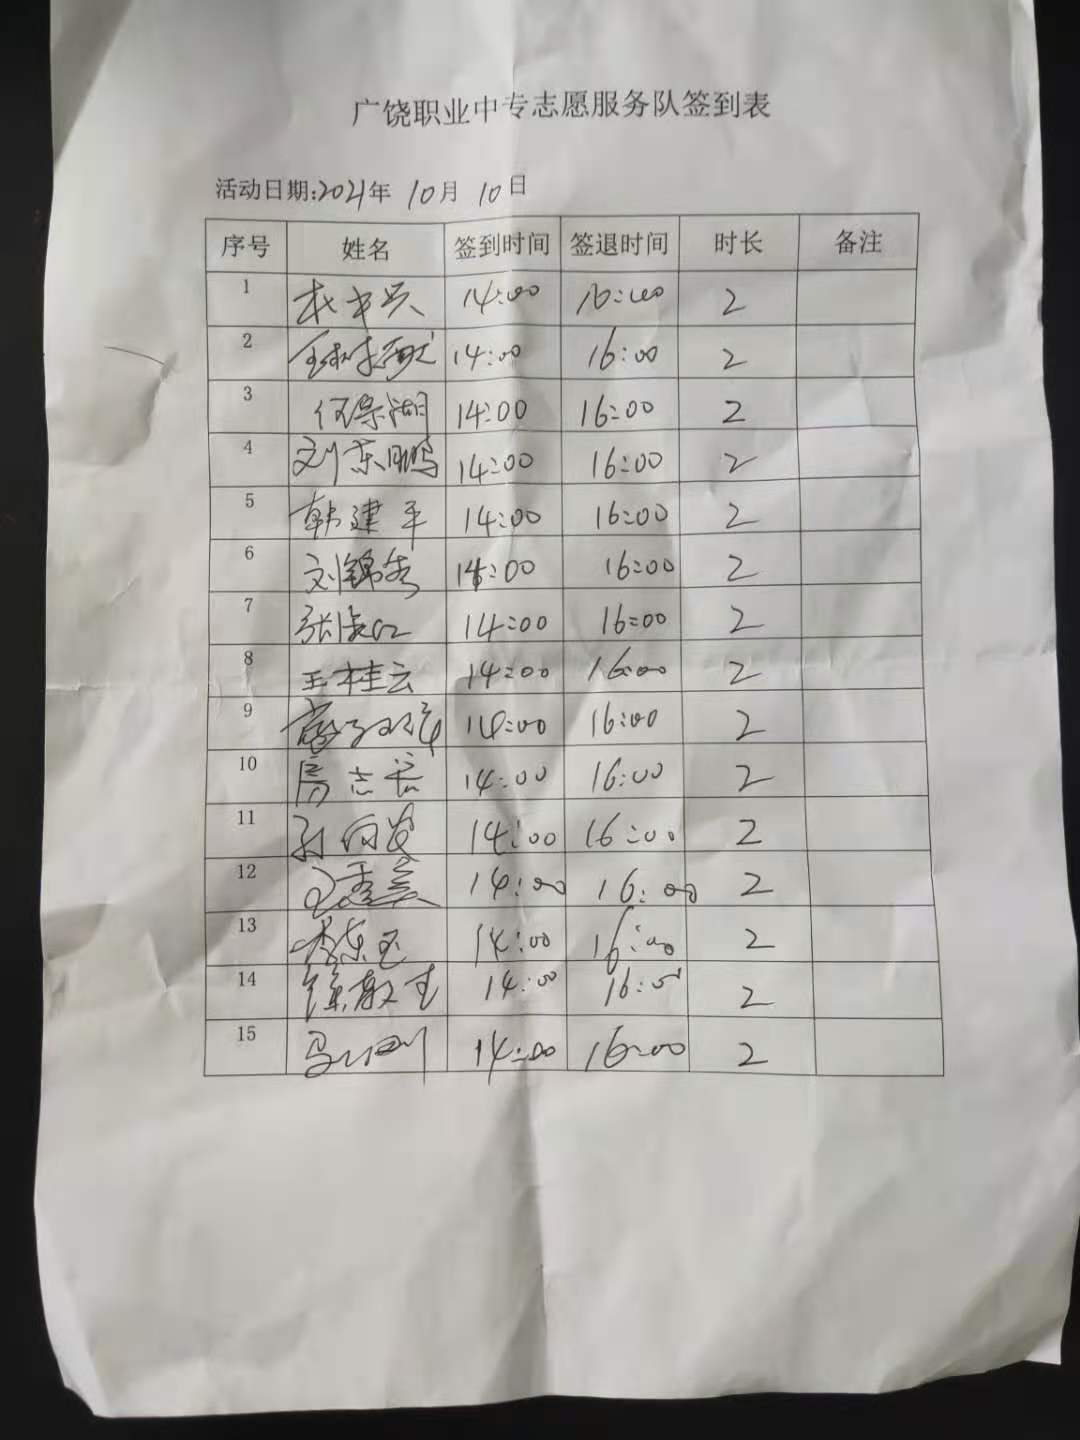 广饶职业中专志愿服务队签到表
活动日期:2021年 10月 10日
序号 姓名 签到时间 签退时间 时长 备注
1 14:00 16:00 2
2 14:00 16:00 2
3 14:00 16:00 2
4 刘东鹏 14:00 16:00 2
5 韩建平 14:00 16:00 2
6 刘锦秀 14:00 16:00 2
7 14:00 16:00 2
8 王桂云 14:00 16:00 2
9 14:00 16:00 2
10 14:00 16:00 2
11 14:00 16:00 2
12 14:00 16:00 2
13 李东玉 14:00 16:00 2
14 14:00 16:00 2
15 14:00 16:00 2